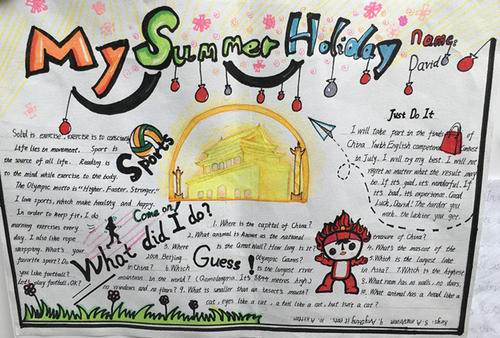 My Summer Holiday
Name:
David
Sports
Solid is exercise, exercise is to
Life lies in movement. Sport is
the source of all life. Reading is
to the mind while exercise to the body.
The Olympic motto is "Higher. Faster. Stronger."
I love sports, which make healthy and happy.
In order to keep fit, I do
morning exercises every
day. I also like rope
skipping. What's your
favorite sport? Do
you like football?
Let's play football, OK?
Come on!
What did I do?
Guess!
1. Where is the capital of China?
2. What animal is known as the national
treasure of China?
3. Where is the Great Wall? How long is it?
4. What's the mascot of the
2008 Beijing Olympic Games?
5. Which is the largest lake
in China? 6. Which is the longest river
in Asia? 7. Which is the highest
mountain in the world? (Qomolangma. It's 8844 metres high)
8. What room has no walls, no doors,
no windows and no floors? 9. What is smaller than an insect's mouth?
10. What animal has a head like a
cat, eyes like a cat, a tail like a cat, but isn't a cat?
Just Do It
I will take part in the
China Youth English competence Contest
in July. I will try my best. I will not
regret no matter what the result may
be. If it's good, it's wonderful. If it
is bad, it's experience. Good
Luck, David! The harder you
work, the luckier you get.